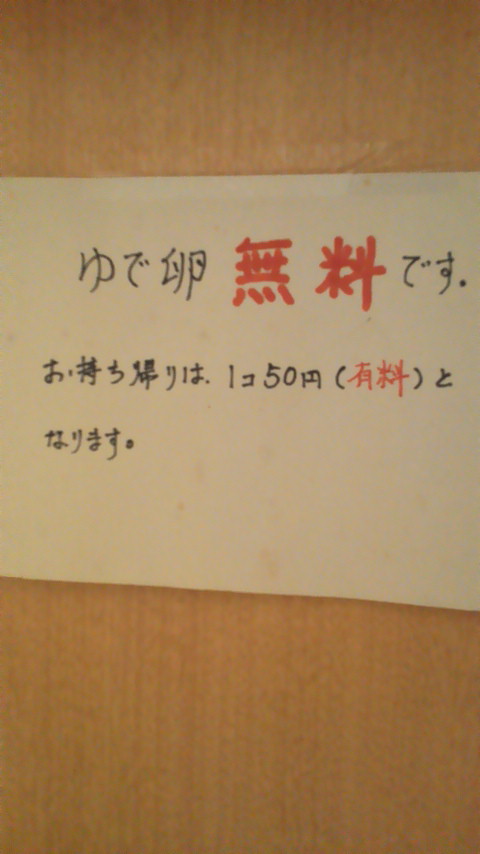 ゆで卵 無料です。
お持ち帰りは、1コ50円(有料)と
なります。